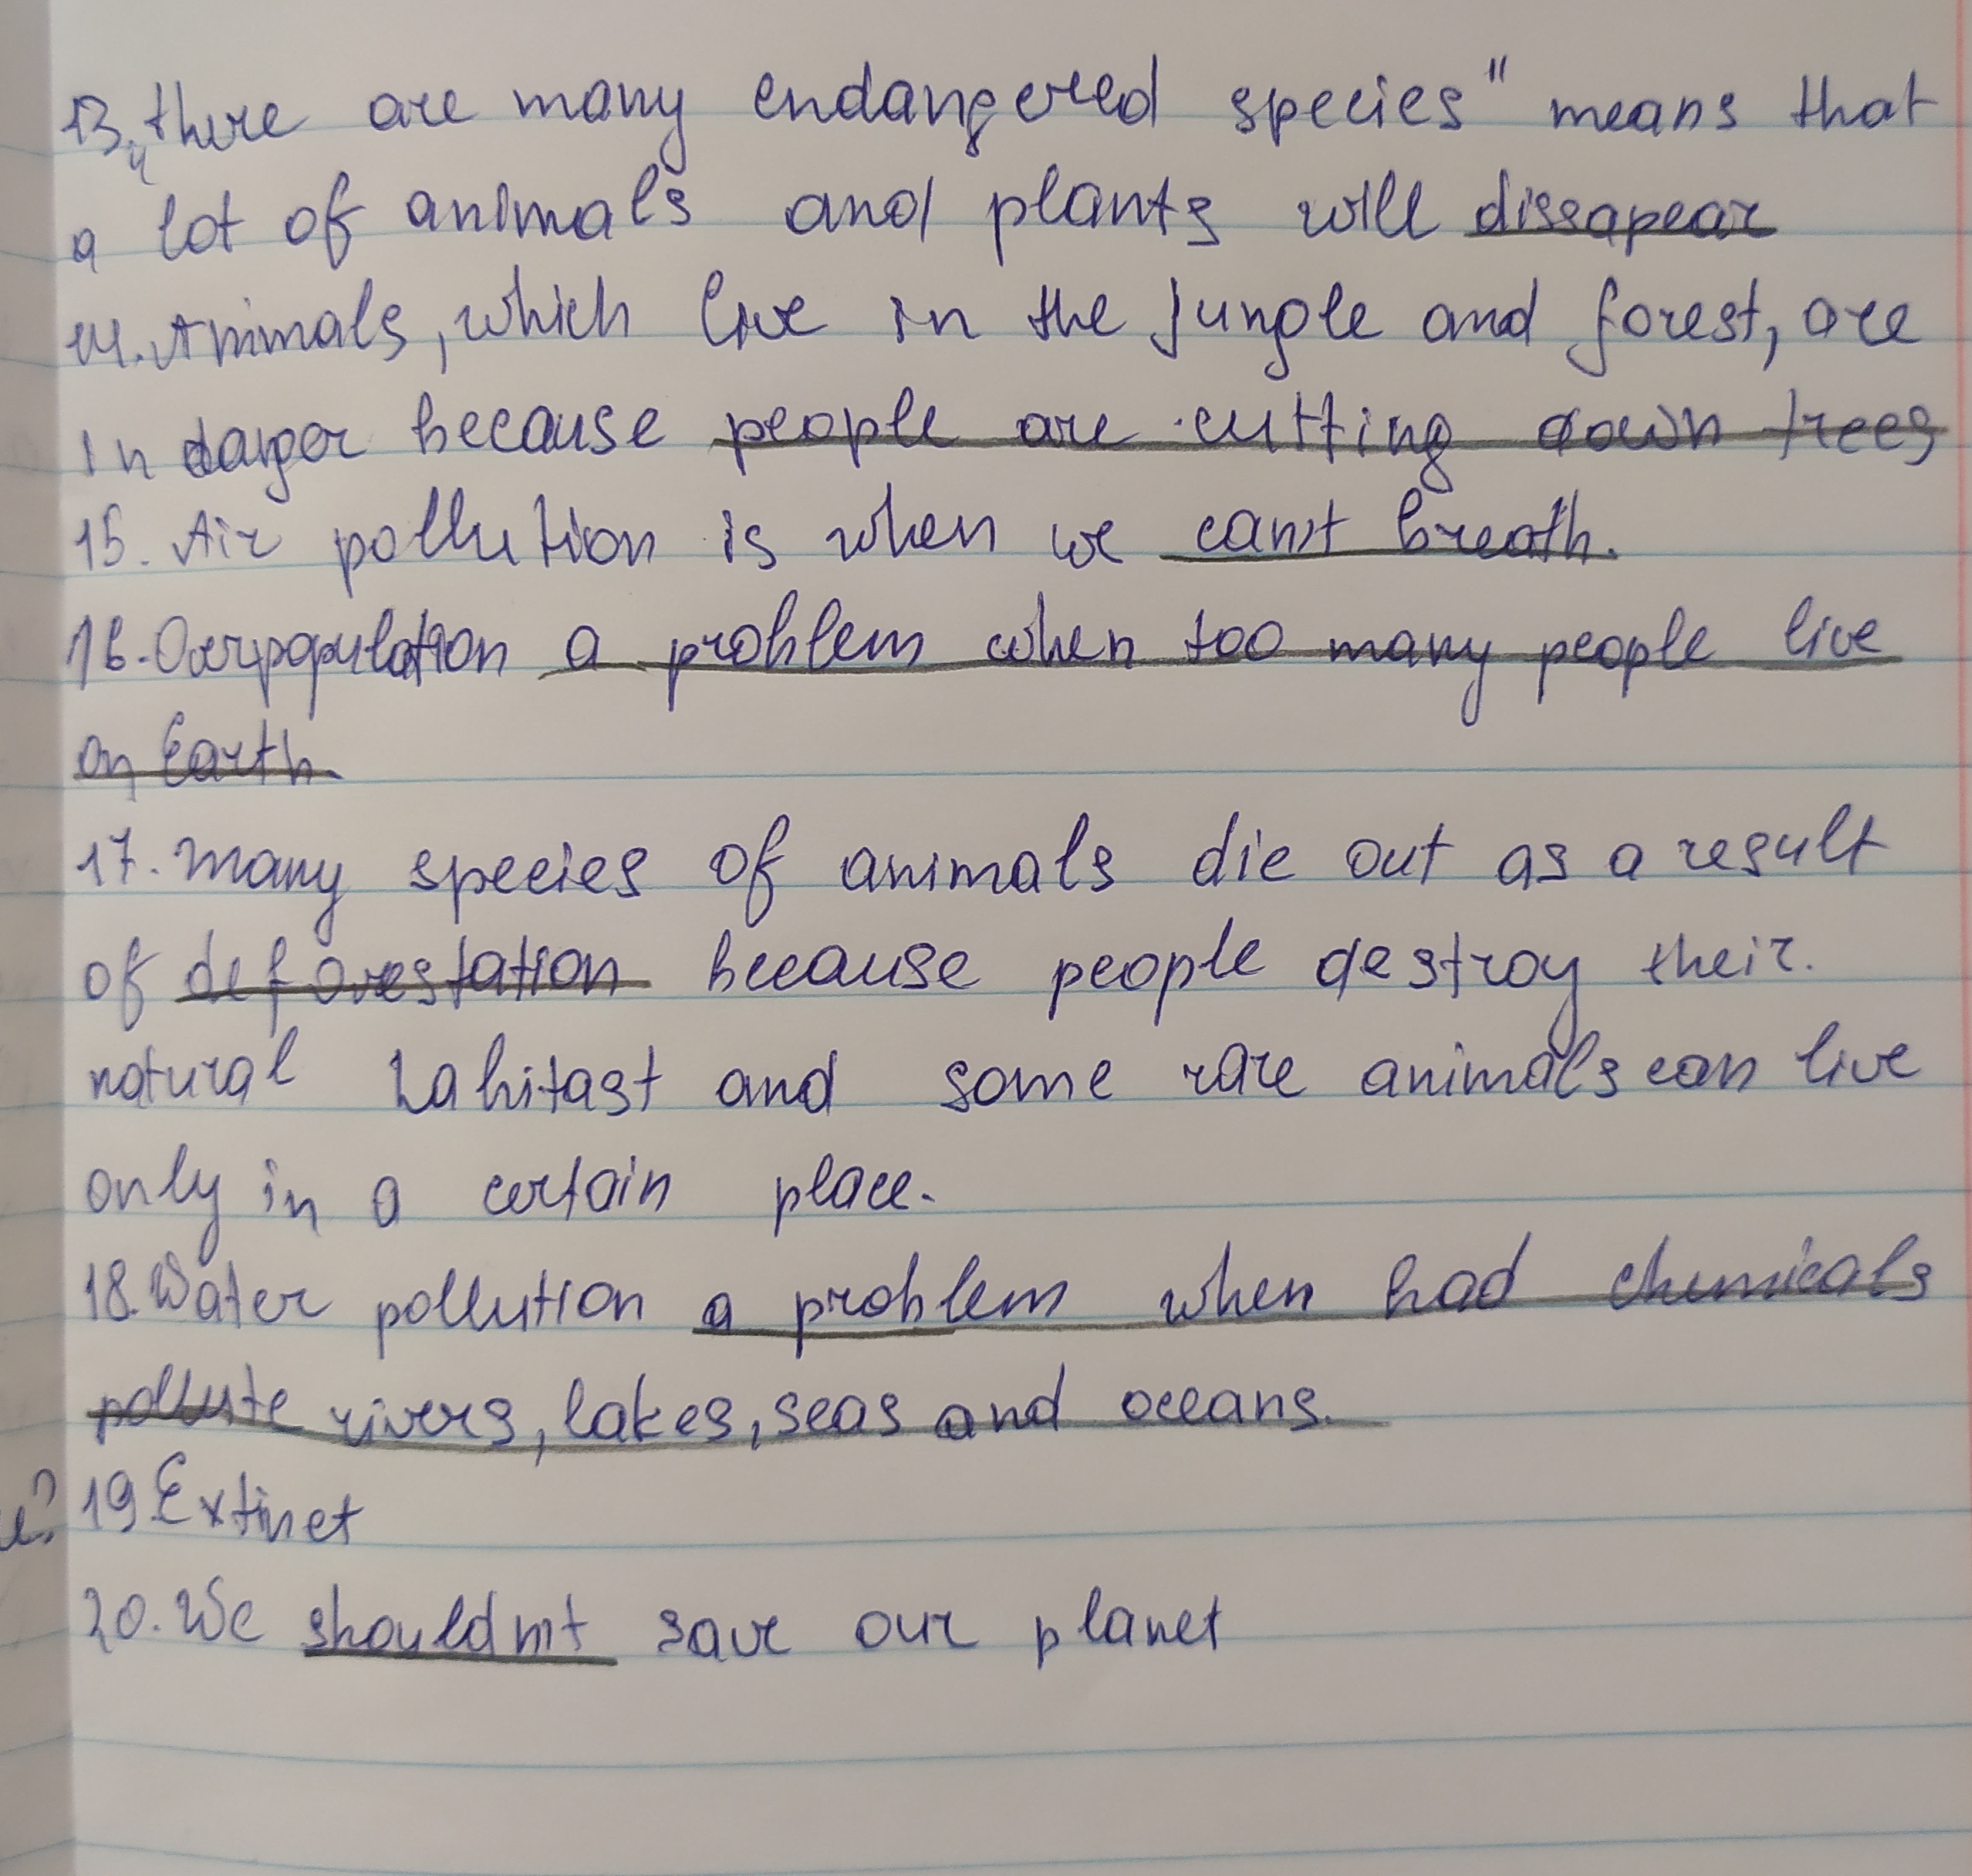 13. „there are many endangered species" means that
a lot of animals and plants will dissapear
14. Animals, which live in the jungle and forest, are
in danger because people are cutting down trees
15. Air pollution is when we can't breath.
16. Overpopulation a problem when too many people live
on Earth.
17. Many species of animals die out as a result
of deforestation because people destroy their.
natural habitast and some rare animals can live
only in a certain place.
18. Water pollution a problem when bad chemicals
pollute rivers, lakes, seas and oceans.
19 Extinct
20. We shouldn't save our planet